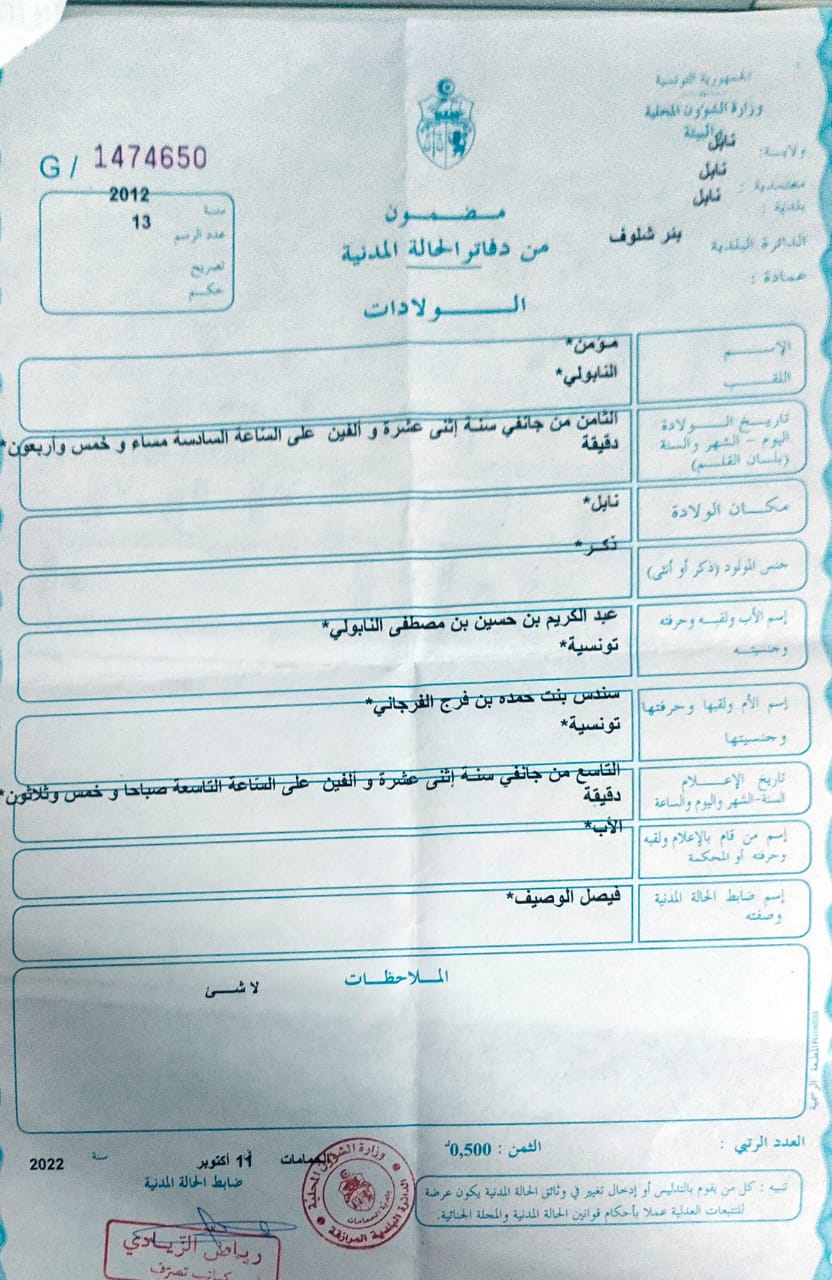 الجمهورية التونسية
وزارة الشؤون المحلية
والبيئة
ولاية: نابل
معتمدية : نابل
بلدية : نابل
الدائرة البلدية بئر شلوف
عمادة :
G / 1474650
سنة 2012
عدد الرسم 13
تصريح
حكم
مضمون
من دفاتر الحالة المدنية
الولادات
الإسم مؤمن*
اللقب النابولي*
تاريخ الولادة
اليوم - الشهر والسنة
(بلسان القلم)
الثامن من جانفي سنة إثنى عشرة و ألفين على الساعة السادسة مساء و خمس وأربعون*
دقيقة
مكان الولادة نابل*
جنس المولود (ذكر أو أنثى) ذكر*
إسم الأب ولقبه وحرفته
وجنسيته
عبد الكريم بن حسين بن مصطفى النابولي*
تونسية*
إسم الأم ولقبها وحرفتها
وجنسيتها
سندس بنت حمده بن فرج الفرجاني*
تونسية*
تاريخ الإعلام
السنة-الشهر واليوم والساعة
التاسع من جانفي سنة إثنى عشرة و ألفين على الساعة التاسعة صباحا و خمس وثلاثون*
دقيقة
إسم من قام بالإعلام ولقبه
وحرفته أو المحكمة
الأب*
إسم ضابط الحالة المدنية
وصفته
فيصل الوصيف*
الملاحظات
لا شئ
المطبعة الرسمية
العدد الرتبي :
الثمن : 0,500د
الحمامات 11 أكتوبر سنة 2022
ضابط الحالة المدنية
تنبيه : كل من يقوم بالتدليس أو إدخال تغيير في وثائق الحالة المدنية يكون عرضة
للتتبعات العدلية عملا بأحكام قوانين الحالة المدنية والمجلة الجنائية.
وزارة الشؤون المحلية
بلدية الحمامات
الدائرة البلدية المرازقة
رياض الزيادي
كاتب تصرف